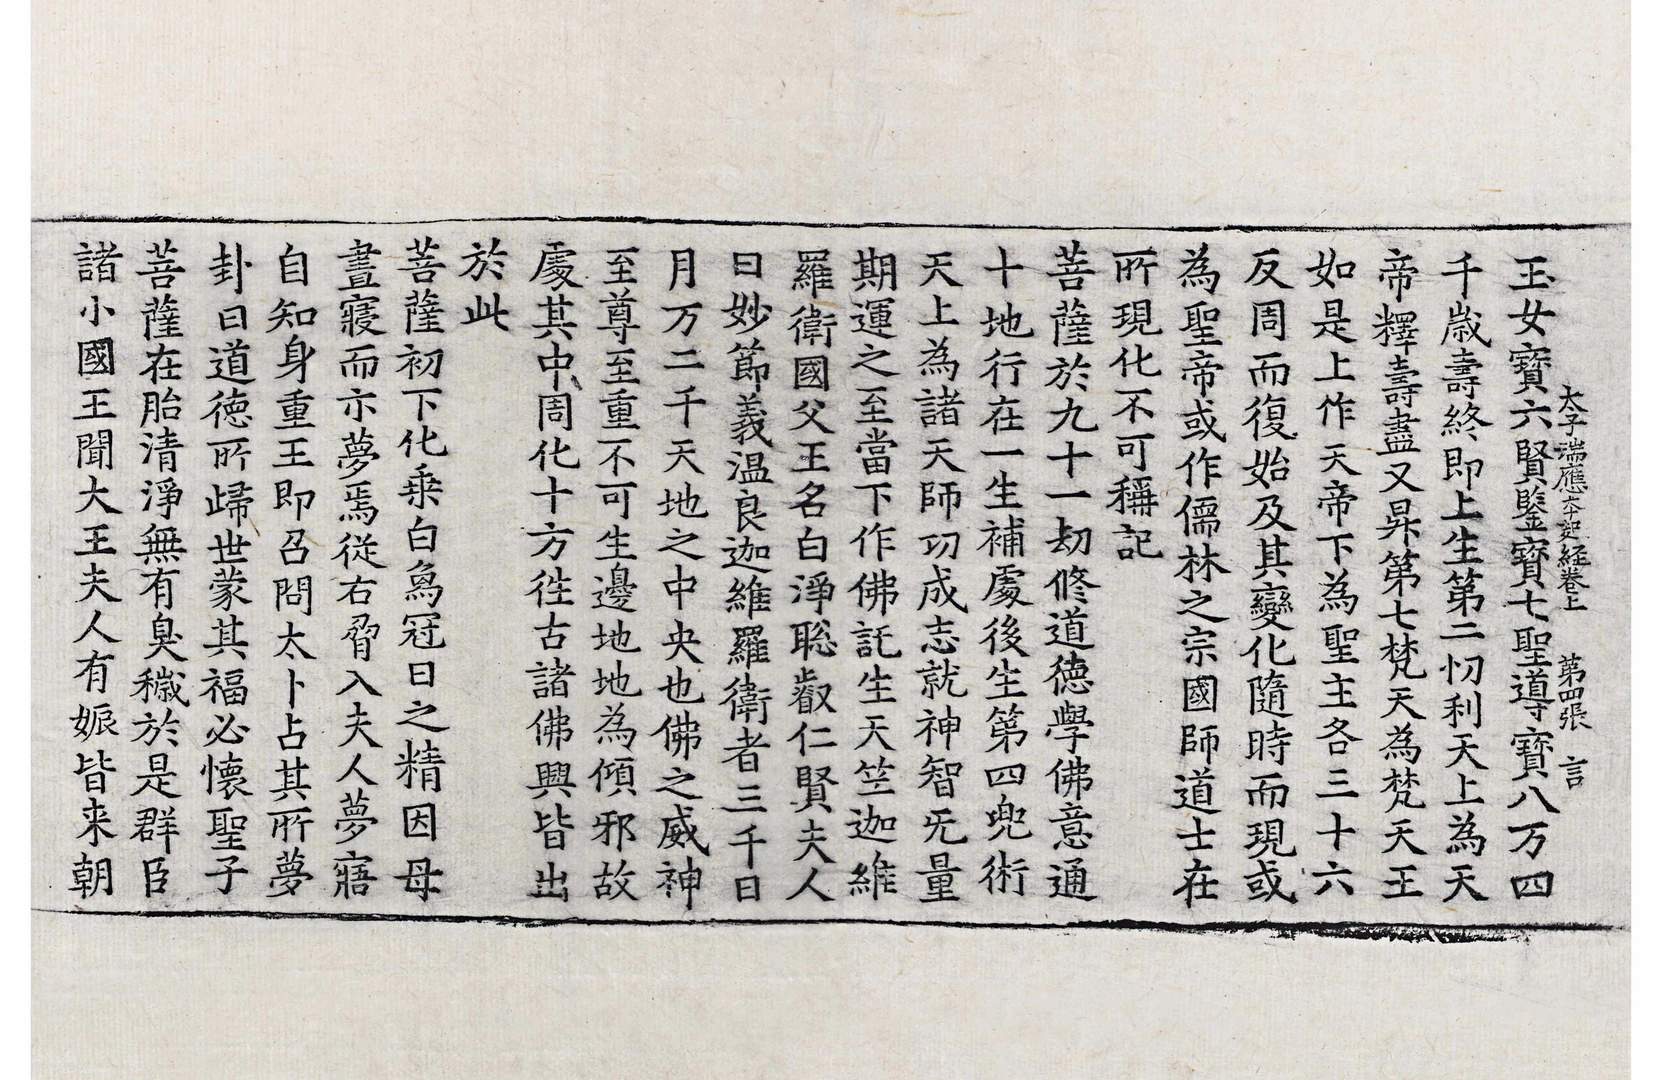 太子瑞應本起經卷上　第四張　言
玉女寶六賢鑒寶七聖導寶八万四
千歳壽終即上生第二忉利天上為天
帝釋壽盡又昇第七梵天為梵天王
如是上作天帝下為聖主各三十六
反周而復始及其變化隨時而現或
為聖帝或作儒林之宗國師道士在
所現化不可稱記
菩薩於九十一劫修道德學佛意通
十地行在一生補處後生第四兜術
天上為諸天師功成志就神智无量
期運之至當下作佛託生天竺迦維
羅衛國父王名白淨聡叡仁賢夫人
曰妙節義温良迦維羅衛者三千日
月万二千天地之中央也佛之威神
至尊至重不可生邊地地為傾邪故
處其中周化十方徃古諸佛興皆出
於此
菩薩初下化乗白象冠日之精因母
晝寢而示夢焉從右脅入夫人夢寤
自知身重王即召問太卜占其所夢
卦曰道德所歸世蒙其福必懷聖子
菩薩在胎清淨無有臭穢於是群臣
諸小國王聞大王夫人有娠皆来朝